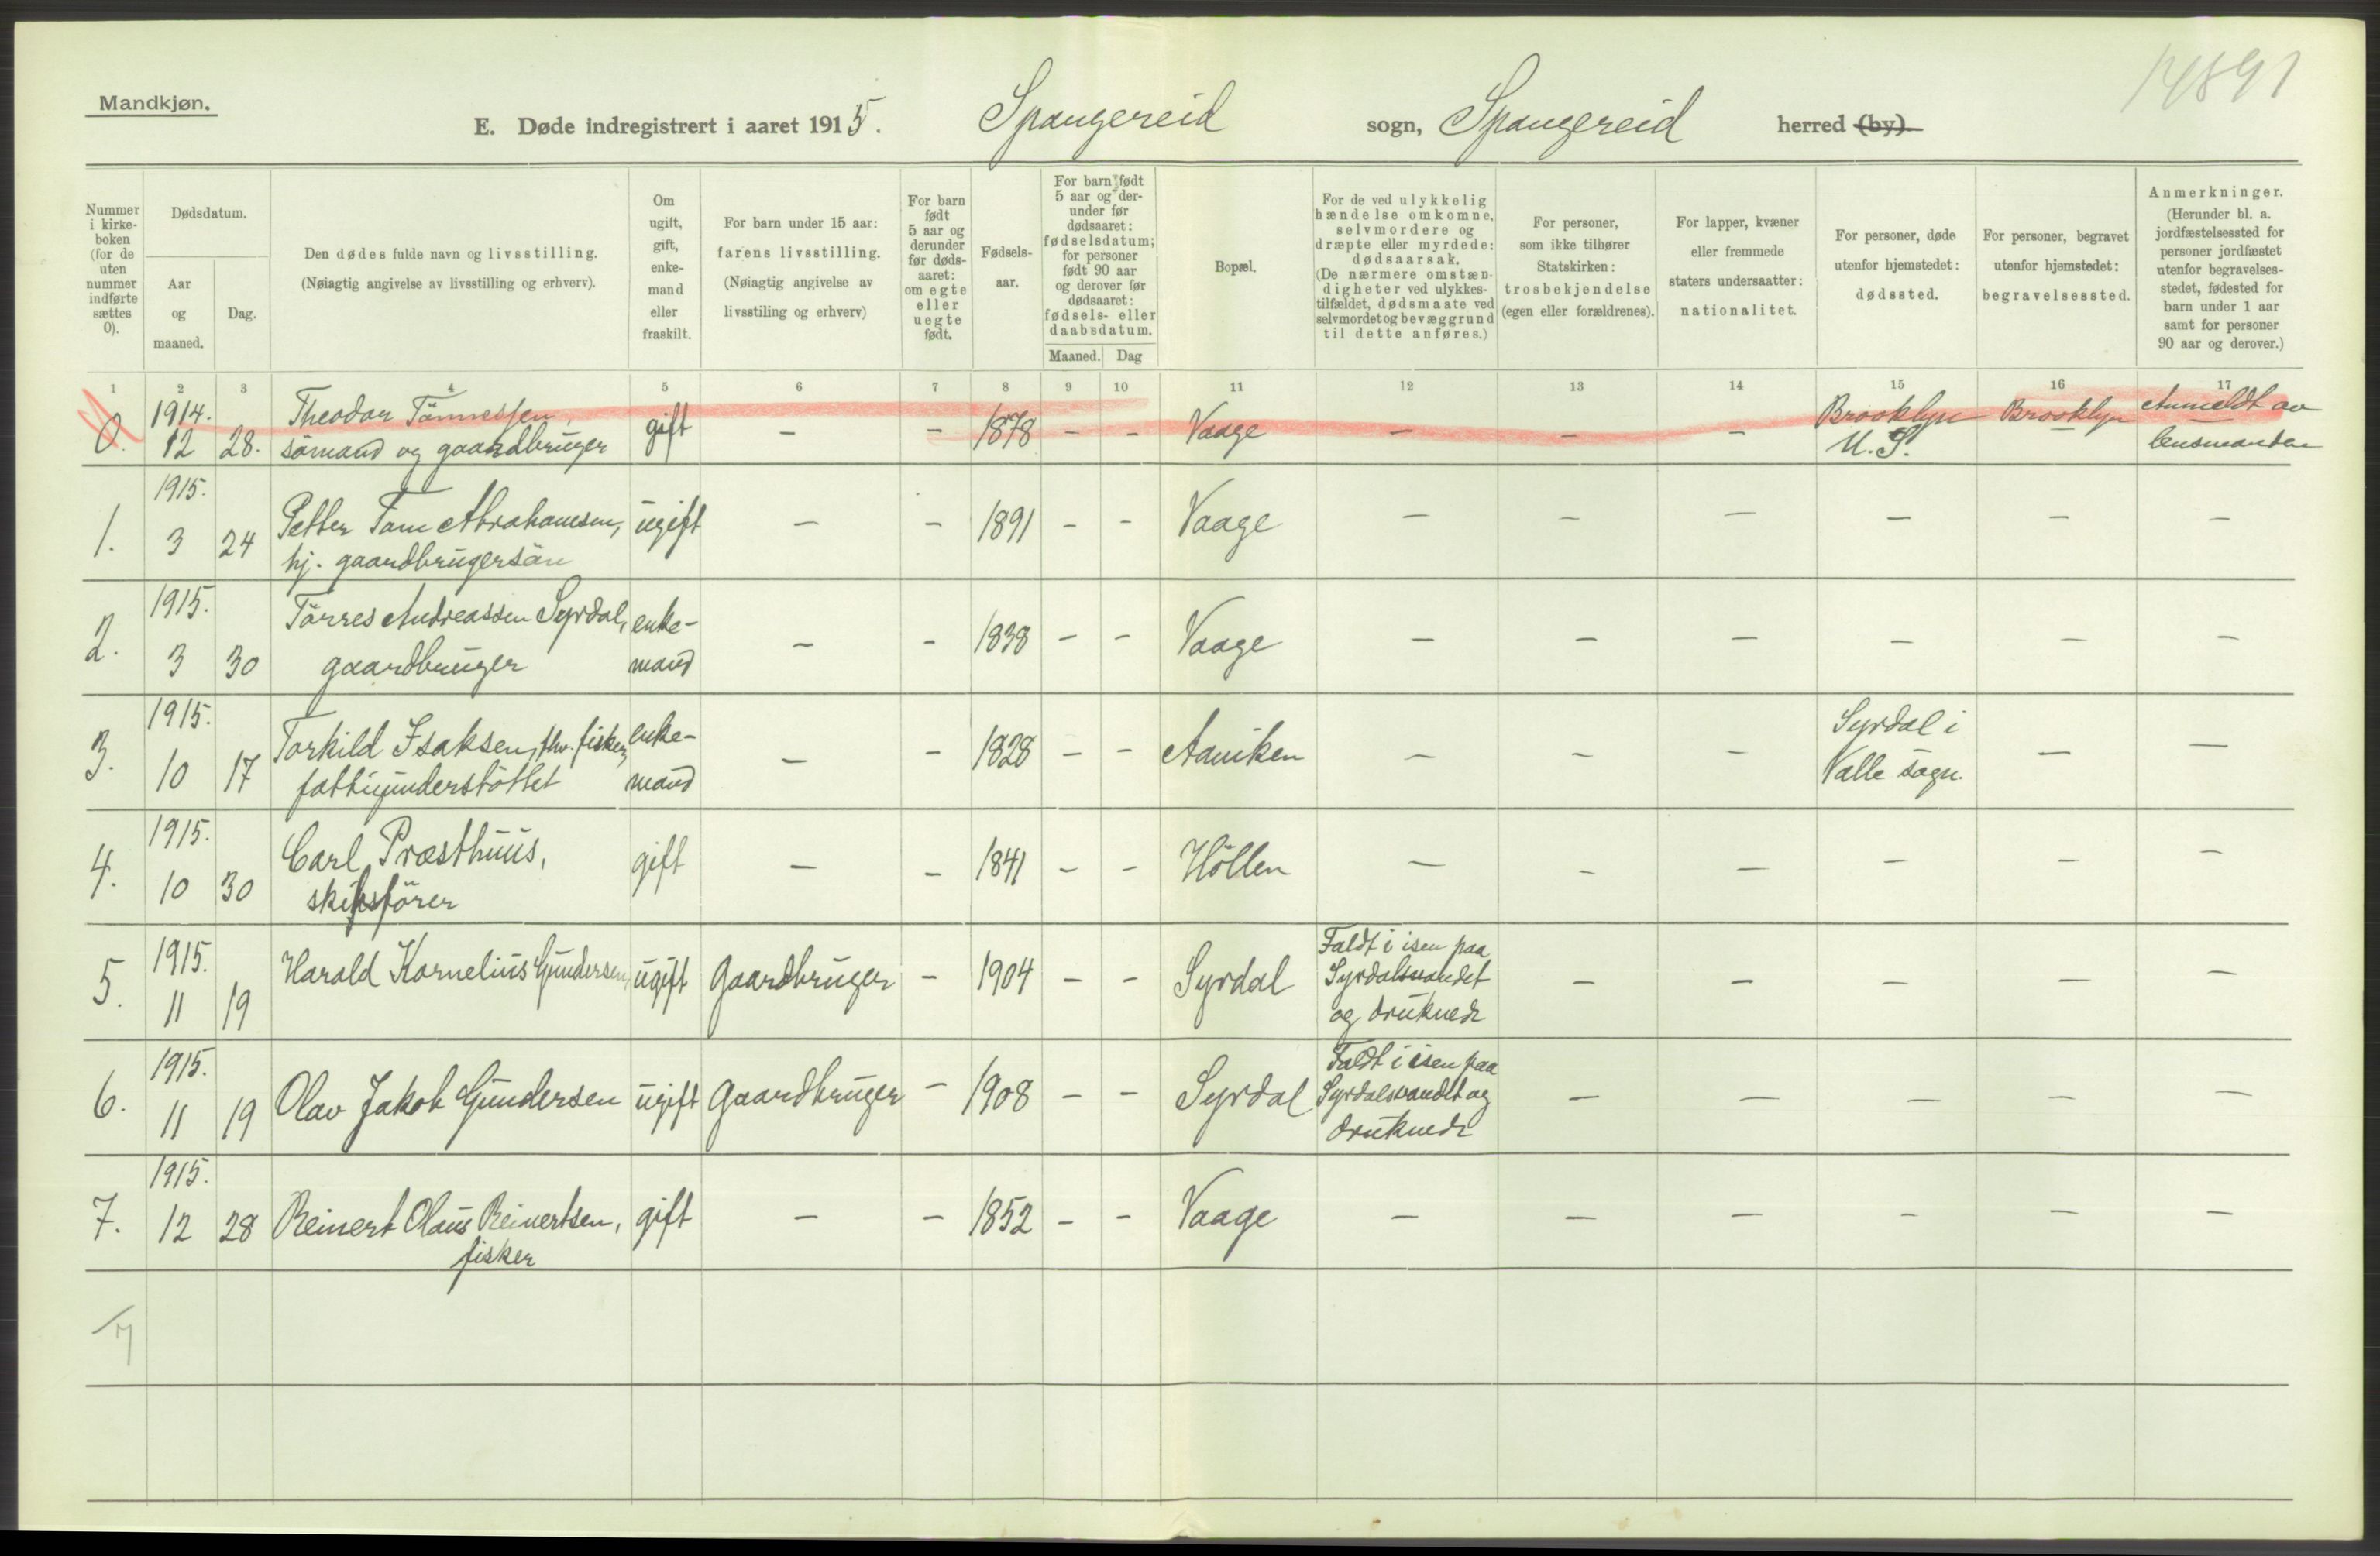 Mandkjøn.
14891
E. Døde indregistrert i aaret 1915. Spangereid sogn, Spangereid herred (by).
Nummer i kirke-boken (for de uten nummer indførte sættes 0).
Dødsdatum.
Aar og maaned.
Dag.
Den dødes fulde navn og livsstilling.
(Nøiagtig angivelse av livsstilling og erhverv).
Om ugift, gift, enke-mand eller fraskilt.
For barn under 15 aar:
farens livsstilling.
(Nøiagtig angivelse av
livsstiling og erhverv)
For barn født 5 aar og derunder før døds-aaret: om egte eller uegte født.
Fødsels-aar.
For barn født 5 aar og der-under før dødsaaret: fødselsdatum; for personer født 90 aar og derover før dødsaaret: fødsels- eller daabsdatum.
Maaned. Dag
Bopæl.
For de ved ulykkelig hændelse omkomne, selvmordere og dræpte eller myrdede: dødsaarsak. (De nærmere omstæn-digheter ved ulykkes-tilfældet, dødsmaate ved selvmordet og bevæggrund til dette anføres.)
For personer, som ikke tilhører Statskirken: trosbekjendelse (egen eller forældrenes).
For lapper, kvæner eller fremmede staters undersaatter: nationalitet.
For personer, døde utenfor hjemstedet: dødssted.
For personer, begravet utenfor hjemstedet: begravelsessted.
Anmerkninger. (Herunder bl. a. jordfæstelsessted for personer jordfæstet utenfor begravelses-stedet, fødested for barn under 1 aar samt for personer 90 aar og derover.)
1 2 3 4 5 6 7 8 9 10 11 12 13 14 15 16 17
0. 1914. 12 28. Theodor Tönnessen, sömand og gaardbruger gift – – 1878 – – Vaage – – – Brooklyn U.S. Brooklyn – Anmeldt av lensmanden
1. 1915. 3 24 Petter Tom Abrahamsen, hj. gaardbrugersön ugift – – 1891 – – Vaage – – – – – –
2. 1915. 3 30 Törres Andreassen Syrdal, gaardbruger enke-mand – – 1838 – – Vaage – – – – – –
3. 1915. 10 17 Torkild Isaksen, fhv. fisker, fattigunderstöttet enke-mand – – 1828 – – Aaviken – – – Syrdal i Valle sogn. – –
4. 1915. 10 30 Carl Præsthuus, skibsförer gift – – 1841 – – Höllen – – – – – –
5. 1915. 11 19 Harald Kornelius Gundersen, ugift Gaardbruger – 1904 – – Syrdal Faldt i isen paa Syrdalsvandet og druknede – – – – –
6. 1915. 11 19 Olav Jakob Gundersen ugift Gaardbruger – 1908 – – Syrdal Faldt i isen paa Syrdalsvandet og druknede – – – – –
7. 1915. 12 28 Reinert Olaus Reinertsen, fisker gift – – 1852 – – Vaage – – – – – –
/7